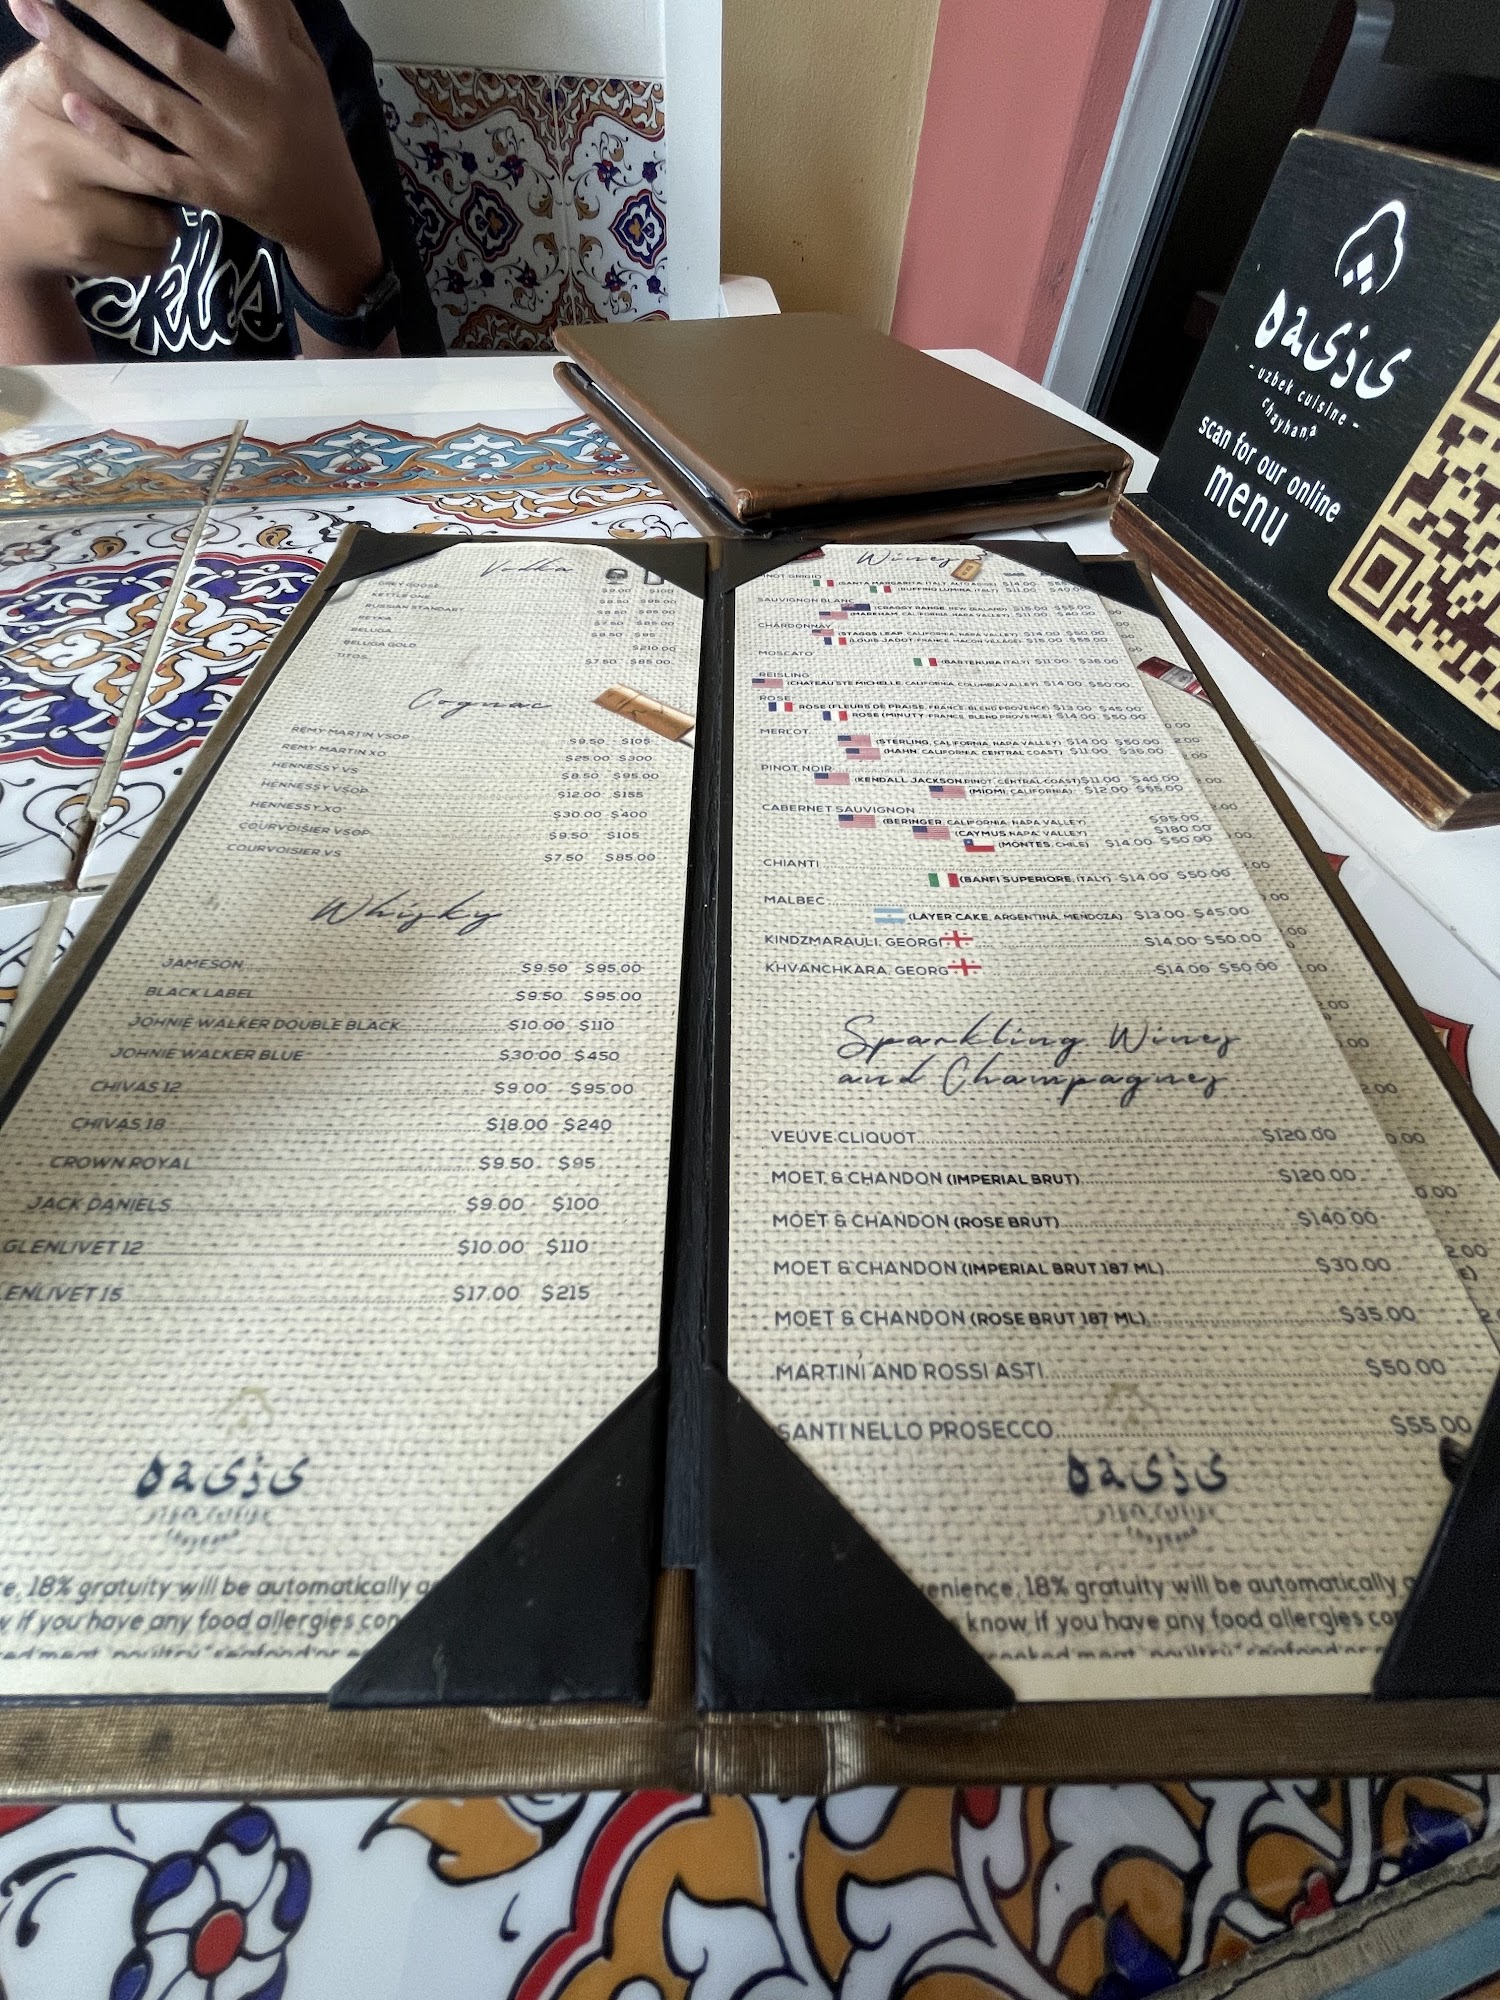 ckles
oasis
- uzbek cuisine -
chayhana
scan for our online
menu
Vodka
GREY GOOSE $9.00 $100
KETTLE ONE $8.50 $95.00
RUSSIAN STANDART $7.50 $85.00
REYKA
BELUGA $9.50 $95
BELUGA GOLD $210.00
TITOS $7.50 $85.00
Cognac
REMY MARTIN VSOP $9.50 - $105
REMY MARTIN XO $25.00 $300
HENNESSY VS $8.50 $95.00
HENNESSY VSOP $12.00 $155
HENNESSY XO $30.00 $400
COURVOISIER VSOP $9.50 $105
COURVOISIER VS $7.50 $85.00
Whisky
JAMESON $9.50 $95.00
BLACK LABEL $9.50 $95.00
JOHNIE WALKER DOUBLE BLACK $10.00 $110
JOHNIE WALKER BLUE $30.00 $450
CHIVAS 12 $9.00 $95.00
CHIVAS 18 $18.00 $240
CROWN ROYAL $9.50 $95
JACK DANIELS $9.00 $100
GLENLIVET 12 $10.00 $110
ENLIVET 15 $17.00 $215
oasis
e, 18% gratuity will be automatically
if you have any food allergies con
Wines
PINOT GRIGIO
(SANTA MARGARITA, ITALY, ALTO ADIGE) $14.00
(RUFFINO LUMINA, ITALY) $11.00
SAUVIGNON BLANC
(CRAGGY RANGE, NEW ZEALAND) $15.00 $55.00
(MARKHAM, CALIFORNIA, NAPA VALLEY) $11.00 $40.00
CHARDONNAY
(STAGGS LEAP, CALIFORNIA, NAPA VALLEY) $14.00 $50.00
(LOUIS JADOT, FRANCE, MACON VILLAGE) $15.00 $55.00
MOSCATO
(BARTENURA ITALY) $11.00 $36.00
REISLING
(CHATEAU STE MICHELLE, CALIFORNIA, COLUMBIA VALLEY) $14.00 $50.00
ROSE
ROSE (FLEURS DE PRAISE, FRANCE, BLEND PROVENCE) $13.00 $45.00
ROSE (MINUTY, FRANCE, BLEND PROVENCE) $14.00 $50.00
MERLOT
(STERLING, CALIFORNIA, NAPA VALLEY) $14.00 $50.00
(HAHN, CALIFORNIA, CENTRAL COAST) $11.00 $36.00
PINOT NOIR
(KENDALL JACKSON PINOT, CENTRAL COAST) $11.00 $40.00
(MIOMI, CALIFORNIA) $12.00 $55.00
CABERNET SAUVIGNON
(BERINGER, CALIFORNIA, NAPA VALLEY) $95.00
(CAYMUS, NAPA VALLEY) $180.00
(MONTES, CHILE) $14.00 $50.00
CHIANTI
(BANFI SUPERIORE, ITALY) $14.00 $50.00
MALBEC
(LAYER CAKE, ARGENTINA, MENDOZA) $13.00 $45.00
KINDZMARAULI, GEORGI $14.00 $50.00
KHVANCHKARA, GEORG $14.00 $50.00
Sparkling Wines
and Champagnes
VEUVE CLIQUOT $120.00
MOET & CHANDON (IMPERIAL BRUT) $120.00
MOET & CHANDON (ROSE BRUT) $140.00
MOET & CHANDON (IMPERIAL BRUT 187 ML) $30.00
MOET & CHANDON (ROSE BRUT 187 ML) $35.00
MARTINI AND ROSSI ASTI $50.00
SANTI NELLO PROSECCO $55.00
oasis
enience, 18% gratuity will be automatically
know if you have any food allergies con